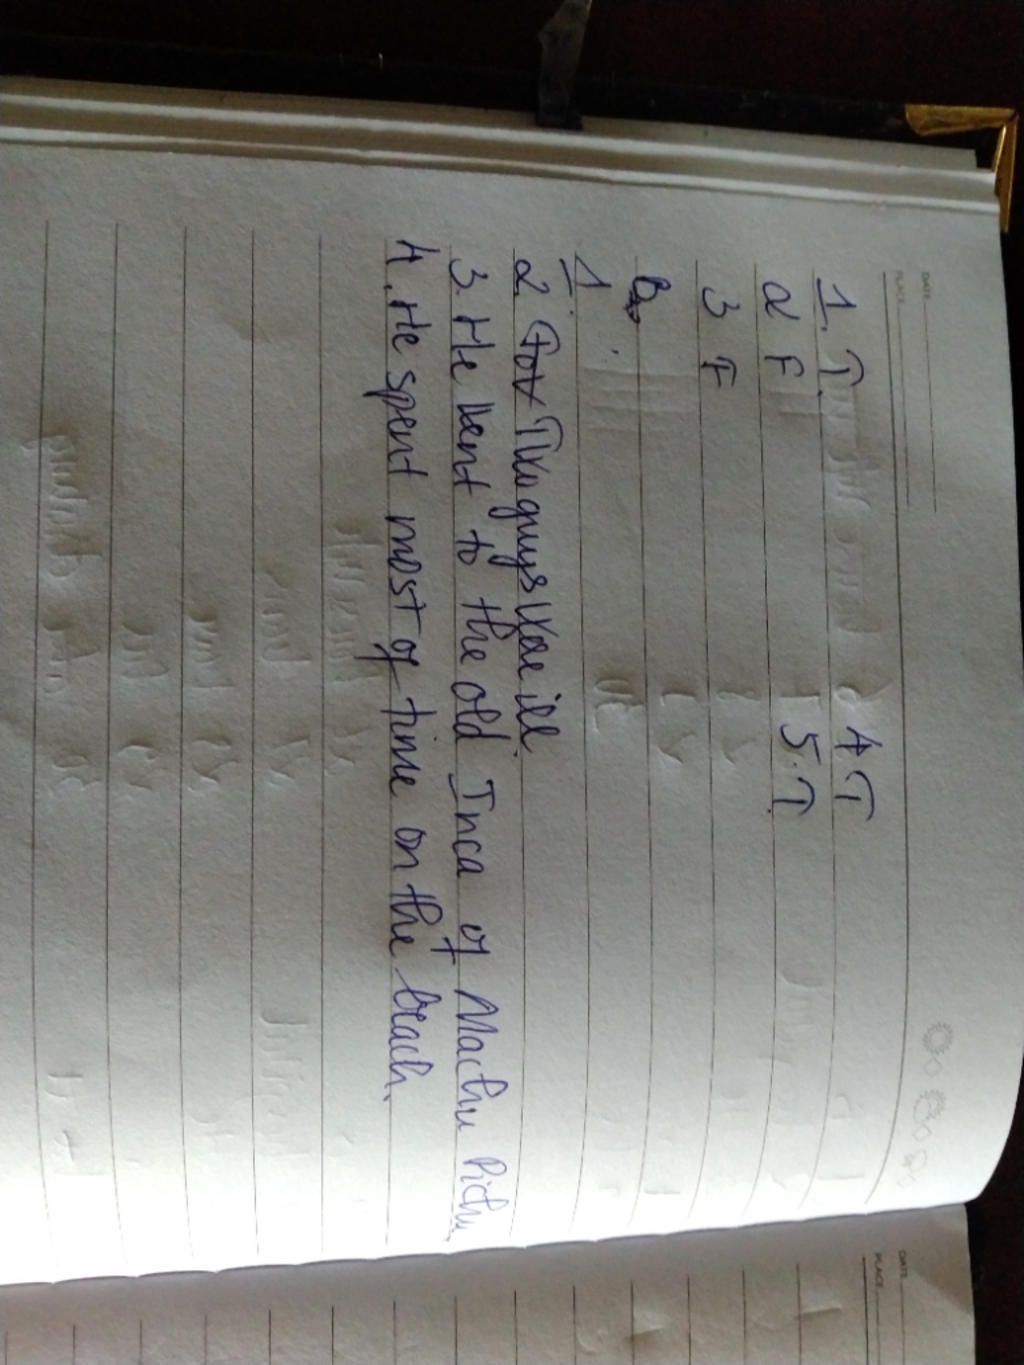 DATE
PLACE
1. T 4 T
2 F 5. T
3 F
B
1.
2. guys ill.
3. He went to the old Inca of Machu Pichu
4. He spent most of time on the beach.
DATE
PLACE